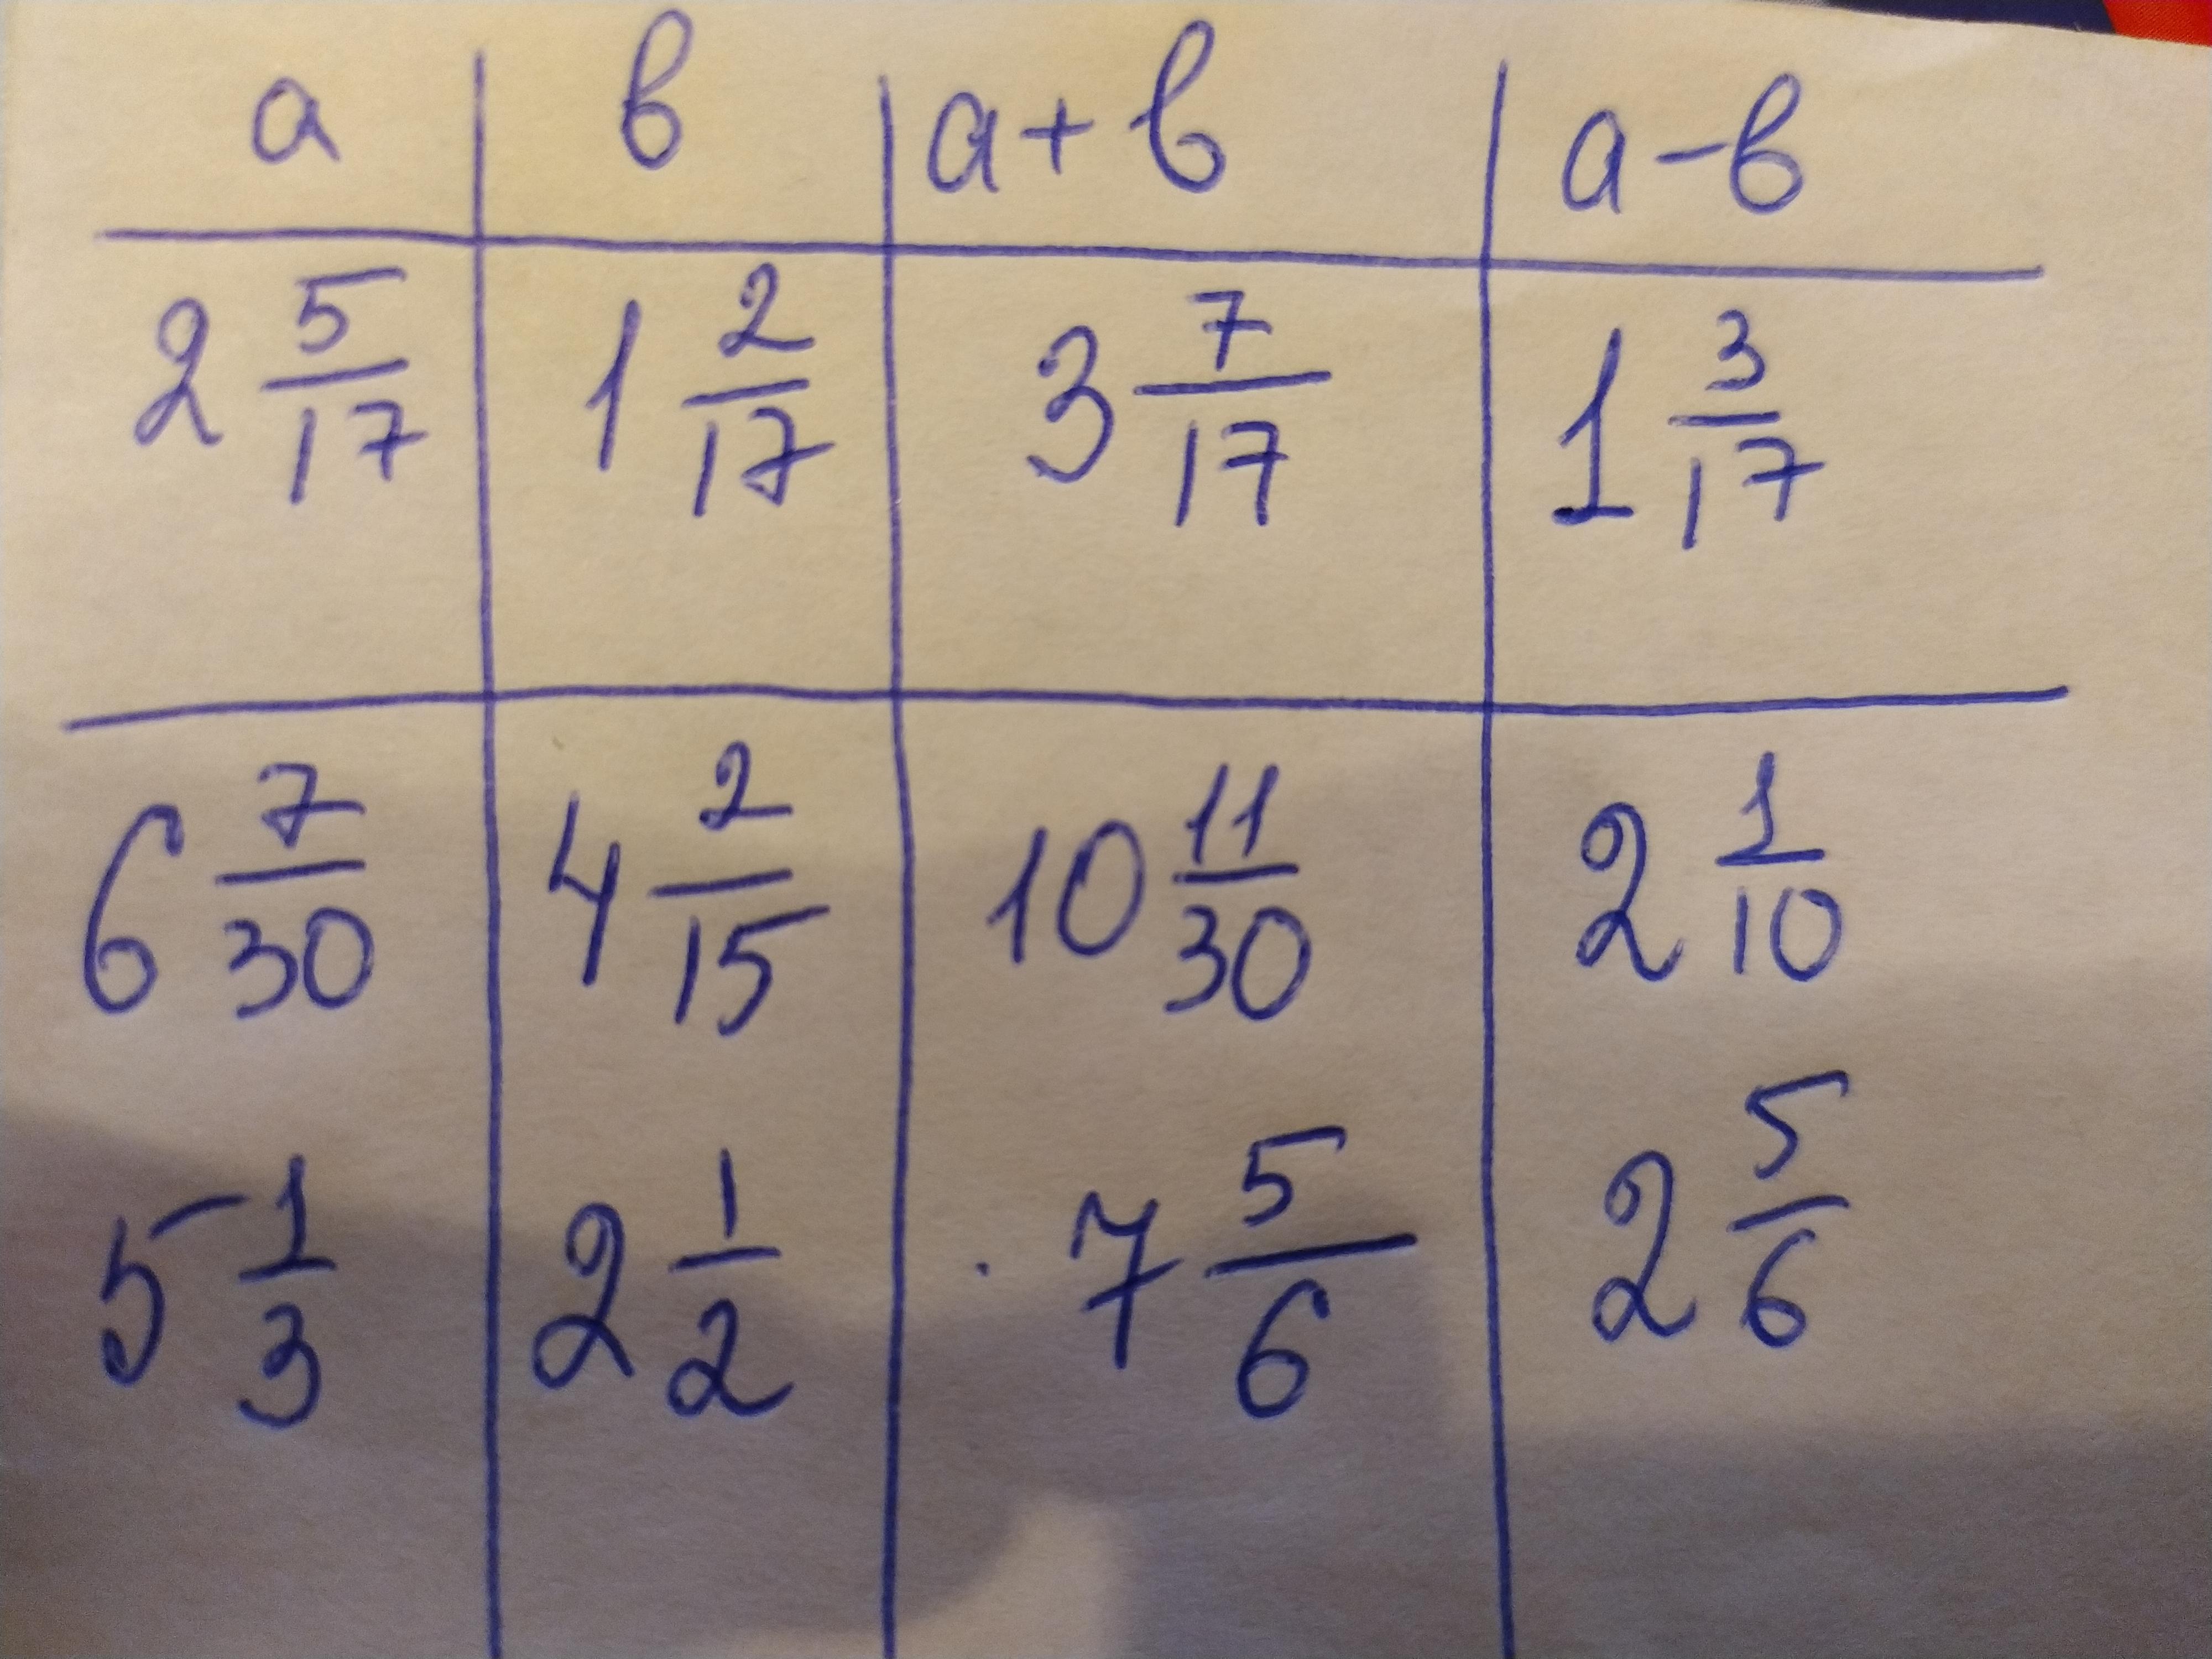 a в a+в a-в
2 5/17 1 2/17 3 7/17 1 3/17
6 7/30 4 2/15 10 11/30 2 1/10
5 1/3 2 1/2 7 5/6 2 5/6